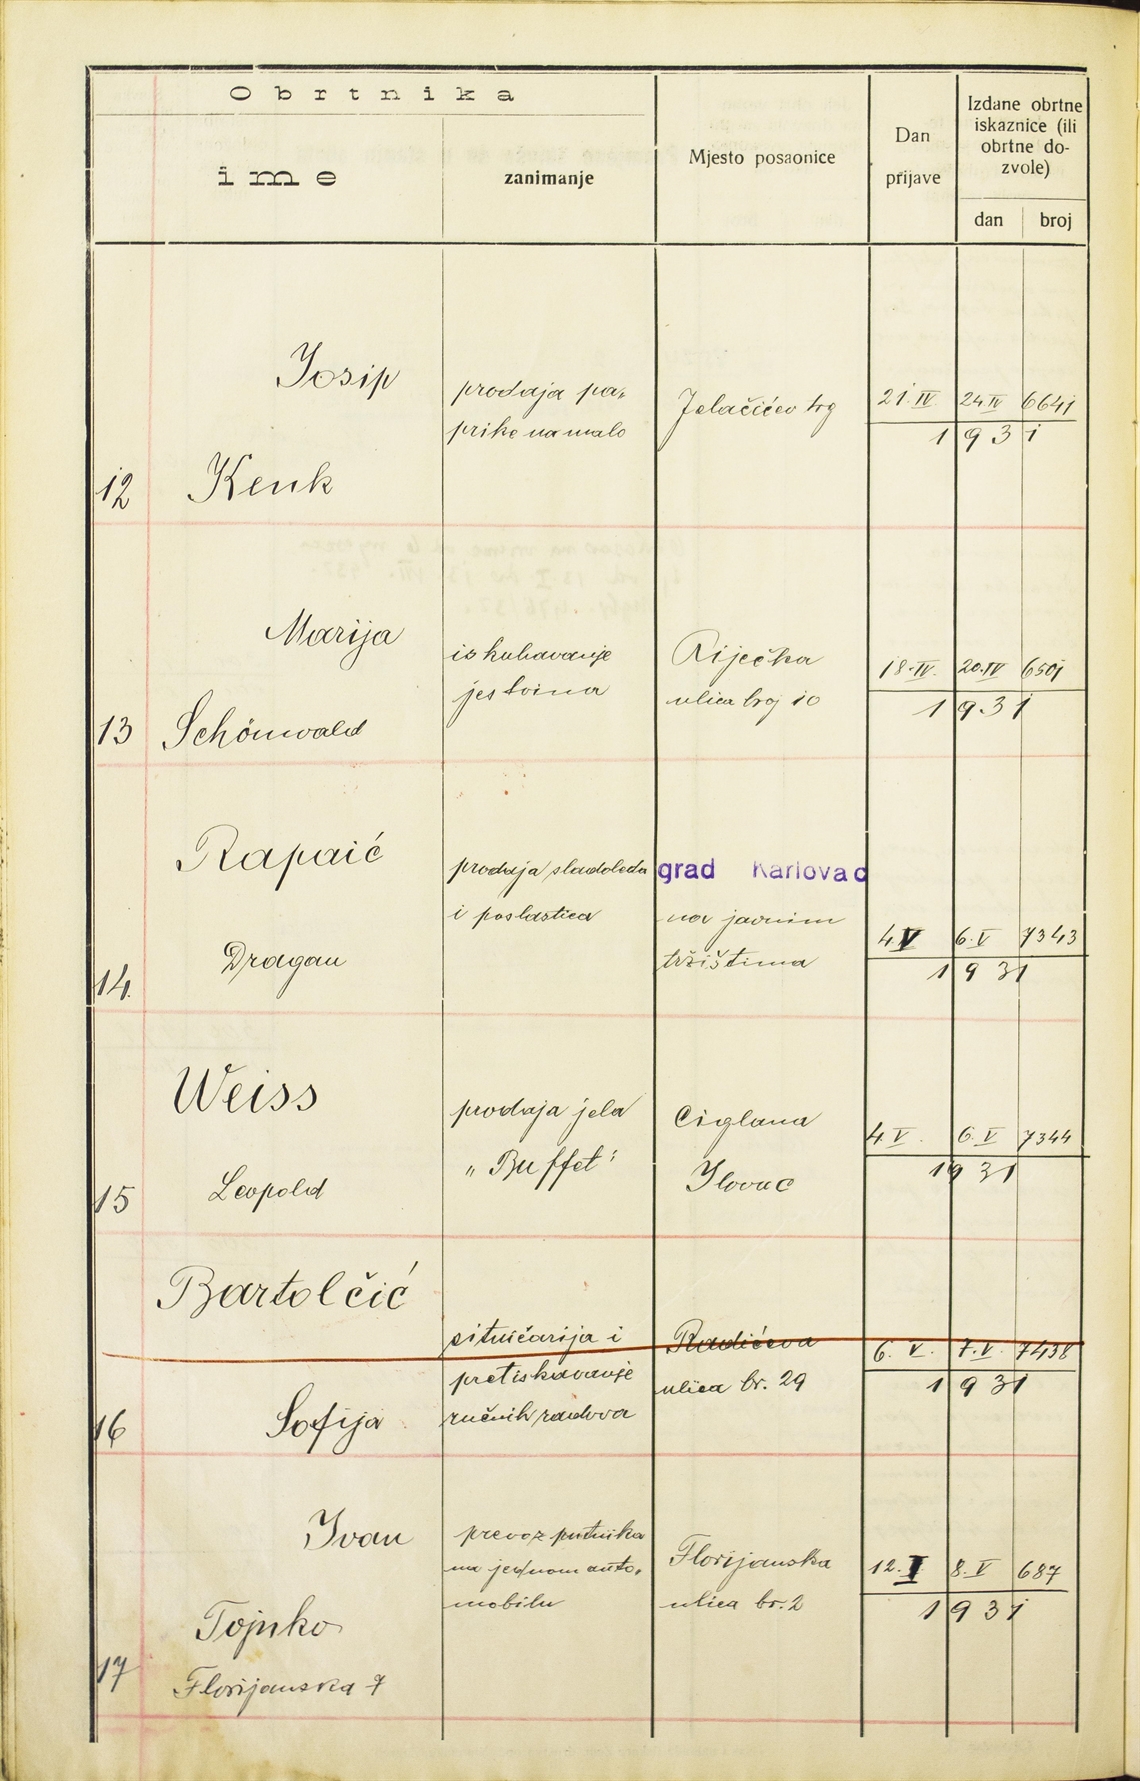 Obrtnika
ime
zanimanje
Mjesto posaonice
Dan
prijave
Izdane obrtne
iskaznice (ili
obrtne do-
zvole)
dan broj
12
Josip
Kenk
prodaja pa„
prike na malo
Jelačićev trg
21. IV. 24 IV 6641
1931
13
Marija
Schönwald
iskuhavanje
jestvina
Riječka
ulica broj 10
18. IV. 20. IV 6501
1931
14.
Rapaić
Dragan
prodaja sladoleda
i poslastica
grad Karlovac
na javnim
tržištima
4. V 6. V 7343
1931
15
Weiss
Leopold
prodaja jela
„Buffet"
Ciglana
Ilovac
4 V. 6. V 7344
1931
16
Bartolčić
Sofija
sitničarija i
pretiskavanje
ručnih radova
Radićeva
ulica br. 29
6. V. 7. V. 7438
1931
17
Ivan
Tojnko
Florijanska 7
prevoz putnika
na jednom auto„
mobilu
Florijanska
ulica br. 2
12. I 8. V 687
1931